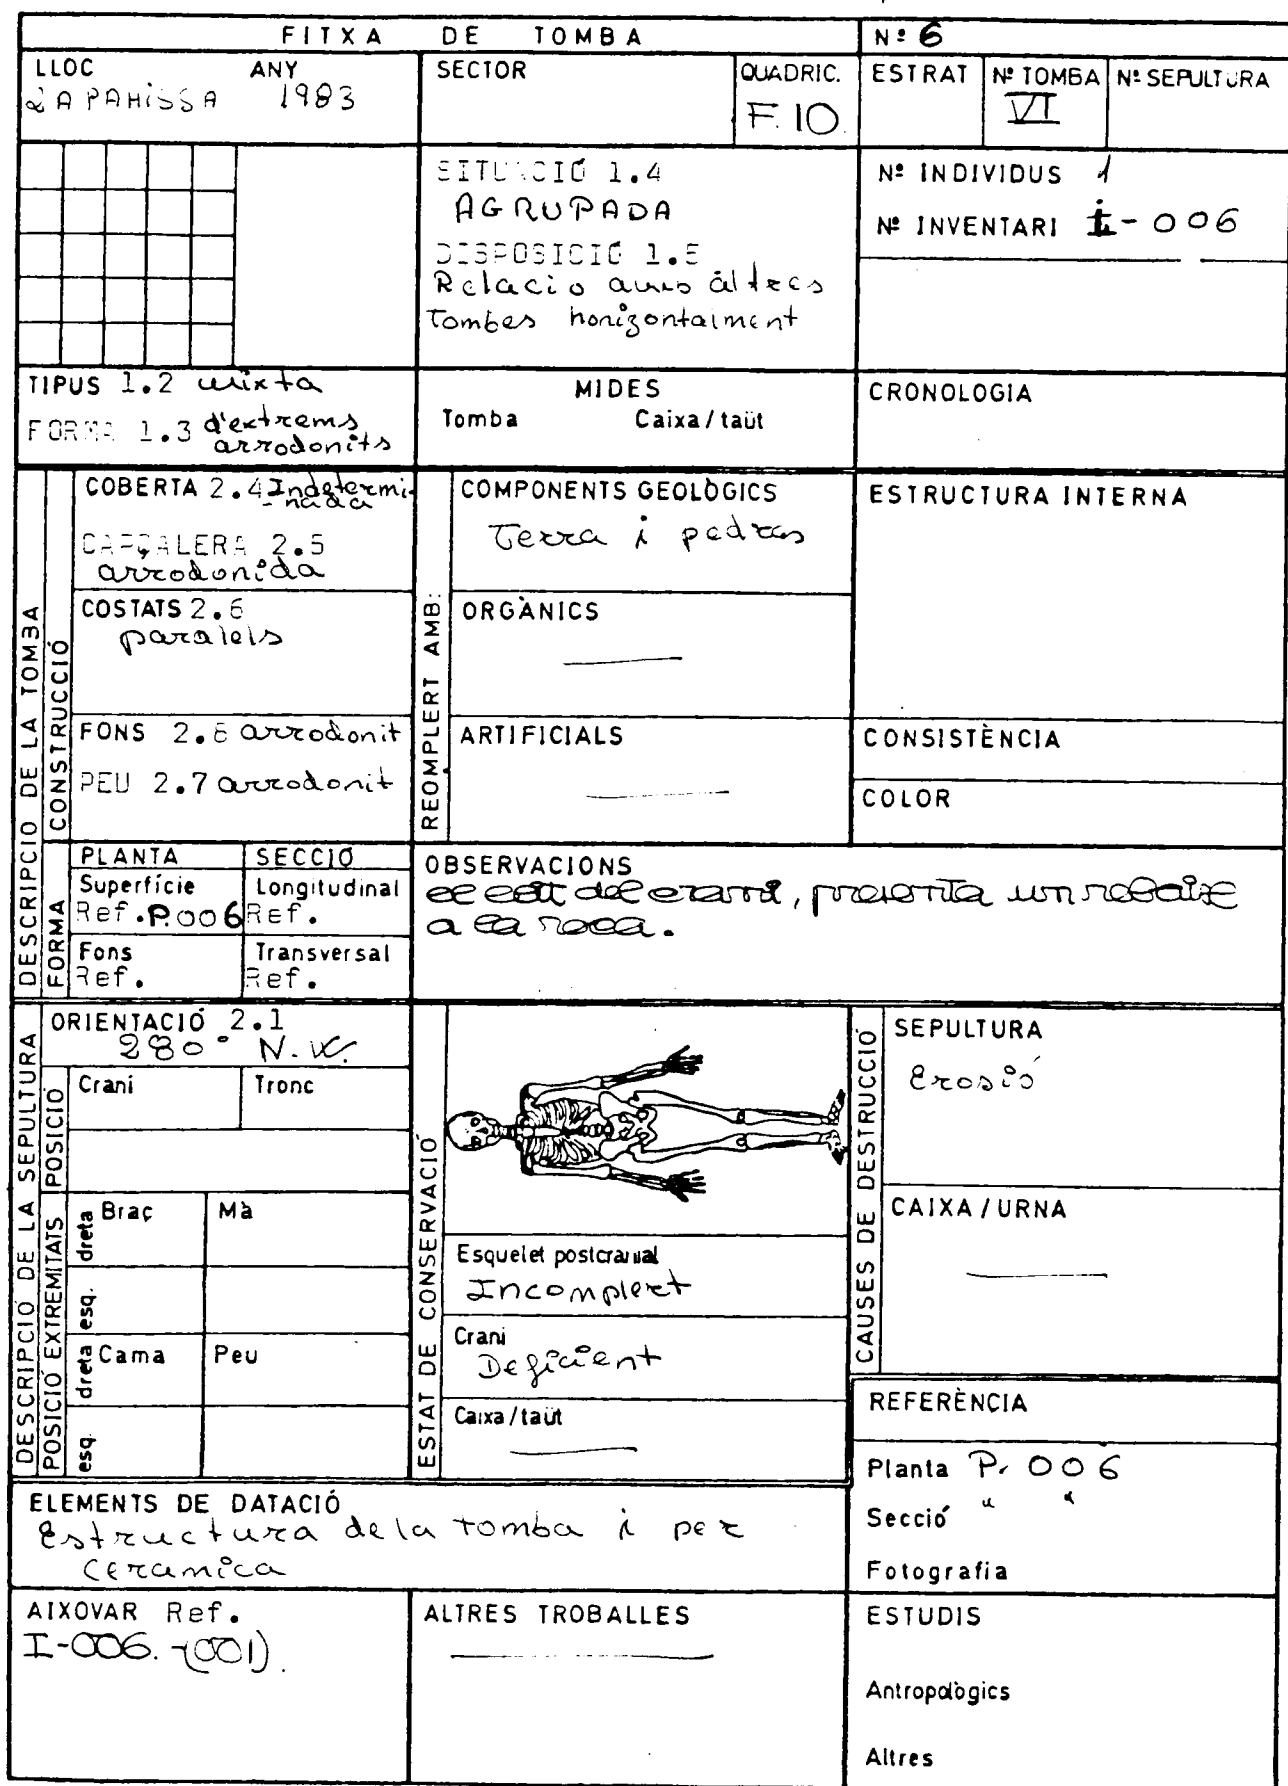 FITXA DE TOMBA Nº 6
LLOC ANY
LA PAHISSA 1983
SECTOR
QUADRIC.
F.10.
ESTRAT
Nº TOMBA
VI
Nº SEPULTURA
SITUACIÓ 1.4
AGRUPADA
DISPOSICIÓ 1.5
Relacio amb altres
Tombes horizontalment
Nº INDIVIDUS 1
Nº INVENTARI I-006
TIPUS 1.2 mixta
FORMA 1.3 d'extrems
arrodonits
MIDES
Tomba Caixa/taüt
CRONOLOGIA
DESCRIPCIO DE LA TOMBA
CONSTRUCCIÓ
COBERTA 2.4 Indetermi-
-nada
CAPÇALERA 2.5
arrodonida
COSTATS 2.6
paralels
FONS 2.6 arrodonit
PEU 2.7 arrodonit
REOMPLERT AMB:
COMPONENTS GEOLÒGICS
Terra i pedres
ORGÀNICS
ARTIFICIALS
ESTRUCTURA INTERNA
CONSISTÈNCIA
COLOR
FORMA
PLANTA
Superfície
Ref. P.006
Fons
Ref.
SECCIÓ
Longitudinal
Ref.
Transversal
Ref.
OBSERVACIONS
el costat del crani, presenta un rebaixe
a la roca.
DESCRIPCIÓ DE LA SEPULTURA
ORIENTACIÓ 2.1
280° N.W.
POSICIÓ
Crani
Tronc
POSICIÓ EXTREMITATS
dreta Braç Mà
esq.
dreta Cama Peu
esq.
ESTAT DE CONSERVACIÓ
Esquelet postcranial
Incomplert
Crani
Deficient
Caixa/taüt
CAUSES DE DESTRUCCIÓ
SEPULTURA
Erosió
CAIXA/URNA
REFERÈNCIA
Planta P. 006
Secció " "
Fotografia
ELEMENTS DE DATACIÓ
Estructura de la tomba i per
ceramica
AIXOVAR Ref.
I-006.-(001).
ALTRES TROBALLES
ESTUDIS
Antropològics
Altres